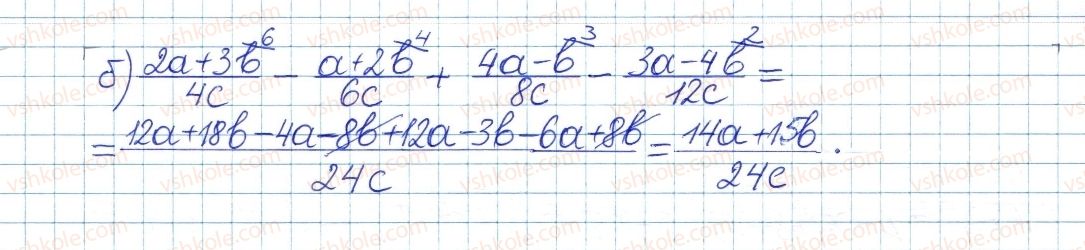 б) (2a+3b)/4c ⁶ − (a+2b)/6c ⁴ + (4a−b)/8c ³ − (3a−4b)/12c ² =
= (12a+18b−4a−8b+12a−3b−6a+8b)/24c = (14a+15b)/24c .